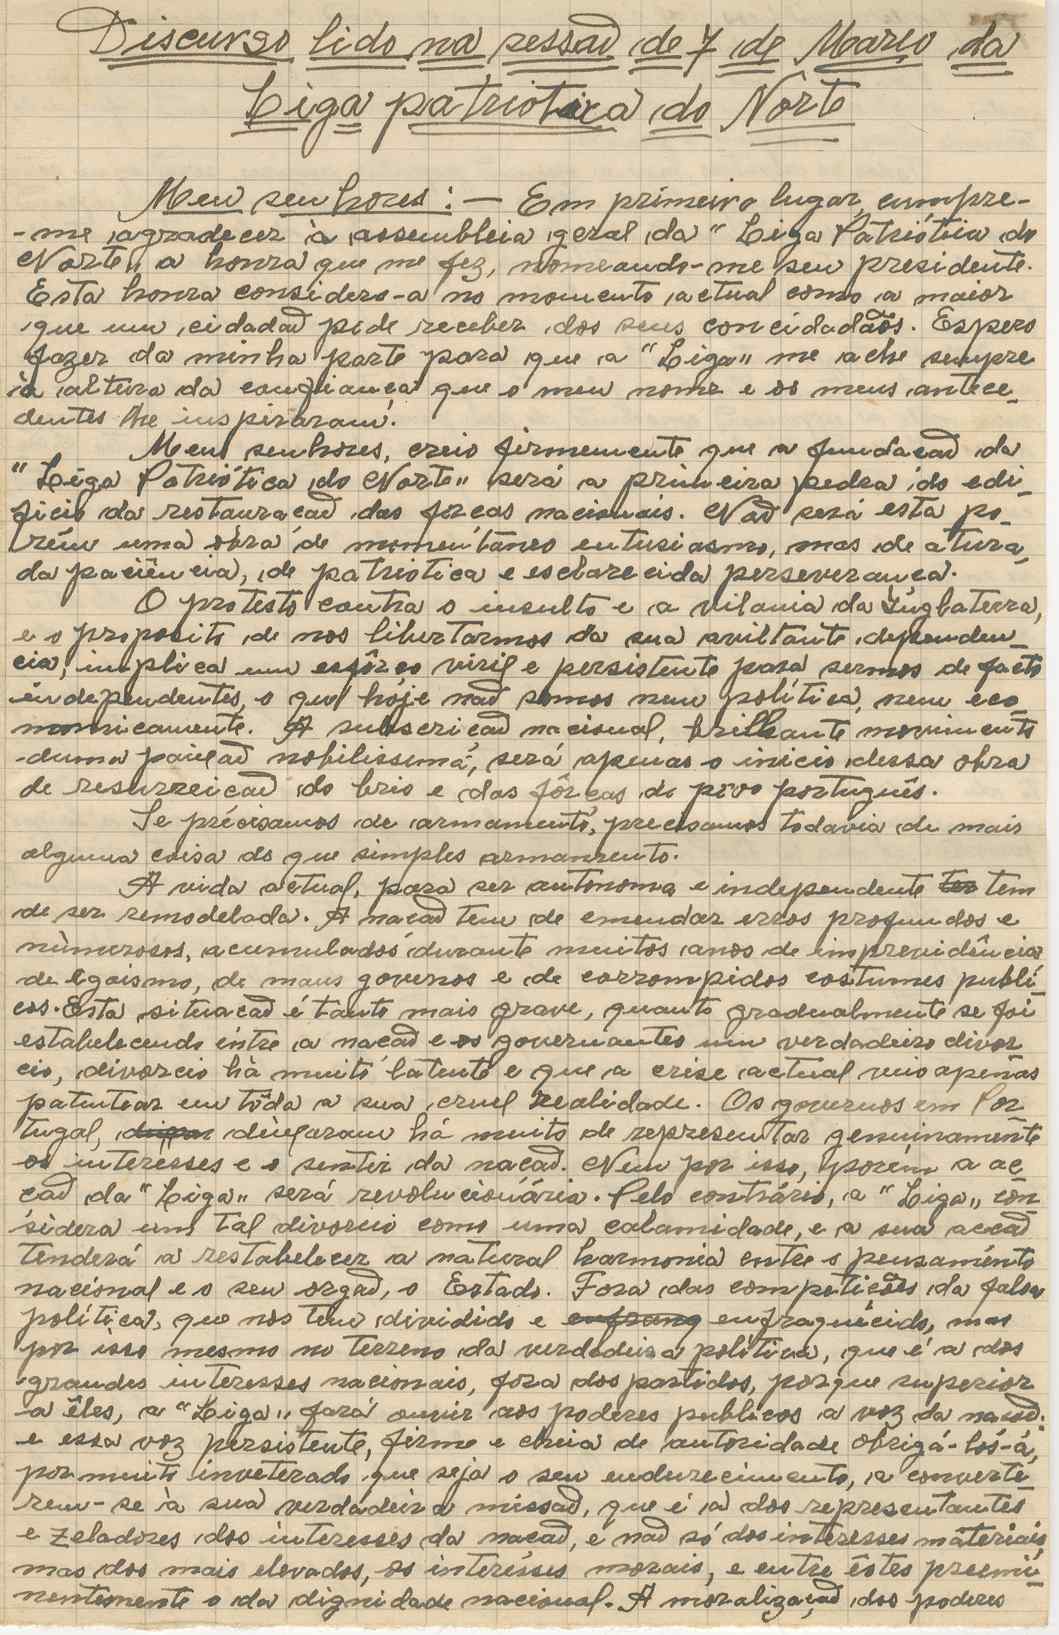 Discurso lido na sessaõ de 7 de Março da
Liga patriotica do Norte
Meus senhores: — Em primeiro lugar, cumpre-
-me agradecer à assembleia geral da "Liga Patriótica do
Norte" a honra que me fez, nomeando-me seu presidente.
Esta honra considero-a no momento actual como a maior
que um cidadaõ pode receber dos seus concidadaõs. Espero
fazer da minha parte para que a "Liga" me ache sempre
à altura da confiança que o meu nome e os meus antece-
dentes lhe inspiraram.
Meus senhores, creio firmemente que a fundaçaõ da
"Liga Patriótica do Norte" será a primeira pedra do edi-
fício da restauraçaõ das forças nacionais. Naõ será esta po-
rém uma obra de momentáneo entusiasmo, mas de atura-
da paciência, de patriotica e esclarecida perseverança.
O protesto contra o insulto e a vilania da Inglaterra,
e o proposito de nos libertarmos da sua aviltante dependen-
cia, implica um esfôrço viril e persistente para sermos de facto
independentes, o que hoje naõ somos nem política, nem eco
nomicamente. A subscriçaõ nacional, brilhante movimento
duma paixaõ nobilissima, será apenas o inicio dessa obra
de resurreiçaõ do brio e das fôrças do povo português.
Se precisamos de armamento, precisamos todavia de mais
alguma coisa do que simples armamento.
A vida actual, para ser autonoma e independente ter tem
de ser remodelada. A naçaõ tem de emendar erros profundos e
númerosos, acumulados durante muitos anos de imprevidência
de egoismo, de maus governos e de corrompidos costumes públi-
cos. Esta situaçaõ é tanto mais grave, quanto gradualmente se foi
estabelecendo entre a naçaõ e os governantes um verdadeiro divor
cio, divorcio hà muito latente e que a crise actual veio apenas
patentear em tôda a sua cruel realidade. Os governos em Por
tugal, deixaram há muito de representar genuinamente
os interesses e o sentir da naçaõ. Nem por isso, porém a ac
çaõ da "Liga" será revolucionária. Pelo contrário, a "Liga" con-
sidera um tal divorcio como uma calamidade, e a sua acçaõ
tenderá a restabelecer a natural harmonia entre o pensamento
nacional e o seu orgaõ, o Estado. Fora das competições da falsa
política, que nos tem dividido e enfraquecido, mas
por isso mesmo no terreno da verdadeira política, que é a dos
grandes interesses nacionais, fora dos partidos, porque superior
a êles, a "Liga" fará ouvir aos poderes publicos a voz da naçaõ:
e essa voz persistente, firme e cheia de autoridade obrigá-los-á,
por muito inveterado que seja o seu endurecimento, a converte-
rem-se à sua verdadeira missaõ, que é a dos representantes
e zeladores dos interesses da naçaõ, e naõ só dos interesses materiais,
mas dos mais elevados, os interêsses morais, e entre êstes preemi-
nentemente o da dignidade nacional. A moralizaçaõ dos poderes